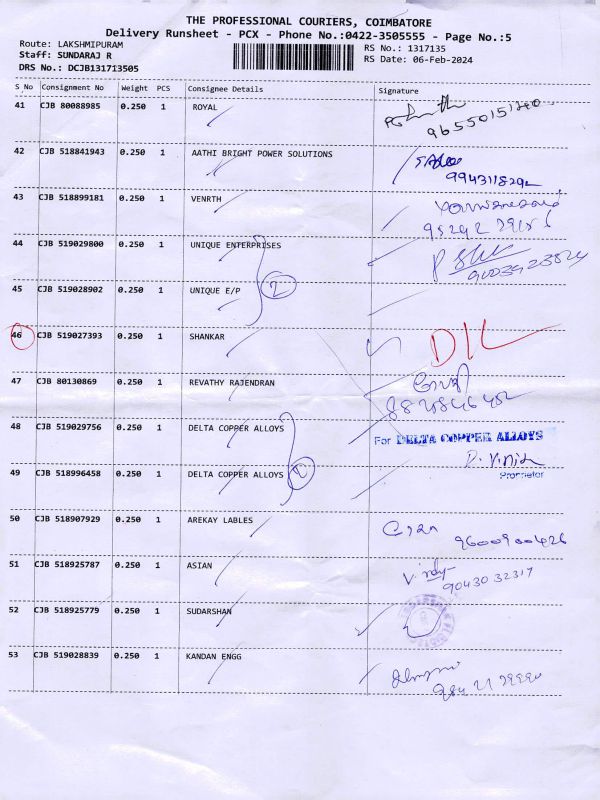 THE PROFESSIONAL COURIERS, COIMBATORE
Delivery Runsheet - PCX - Phone No.:0422-3505555 - Page No.:5
Route: LAKSHMIPURAM
Staff: SUNDARAJ R
DRS No.: DCJB131713505
RS No.: 1317135
RS Date: 06-Feb-2024
S No Consignment No Weight PCS Consignee Details Signature
41 CJB 80088985 0.250 1 ROYAL
42 CJB 518841943 0.250 1 AATHI BRIGHT POWER SOLUTIONS
9943118292
43 CJB 518899181 0.250 1 VENRTH
44 CJB 519029800 0.250 1 UNIQUE ENTERPRISES
45 CJB 519028902 0.250 1 UNIQUE E/P
2
46 CJB 519027393 0.250 1 SHANKAR
47 CJB 80130869 0.250 1 REVATHY RAJENDRAN
48 CJB 519029756 0.250 1 DELTA COPPER ALLOYS
For DELTA COPPER ALLOYS
Proprietor
49 CJB 518996458 0.250 1 DELTA COPPER ALLOYS
2
50 CJB 518907929 0.250 1 AREKAY LABLES
9600900426
51 CJB 518925787 0.250 1 ASIAN
9043032317
52 CJB 518925779 0.250 1 SUDARSHAN
53 CJB 519028839 0.250 1 KANDAN ENGG